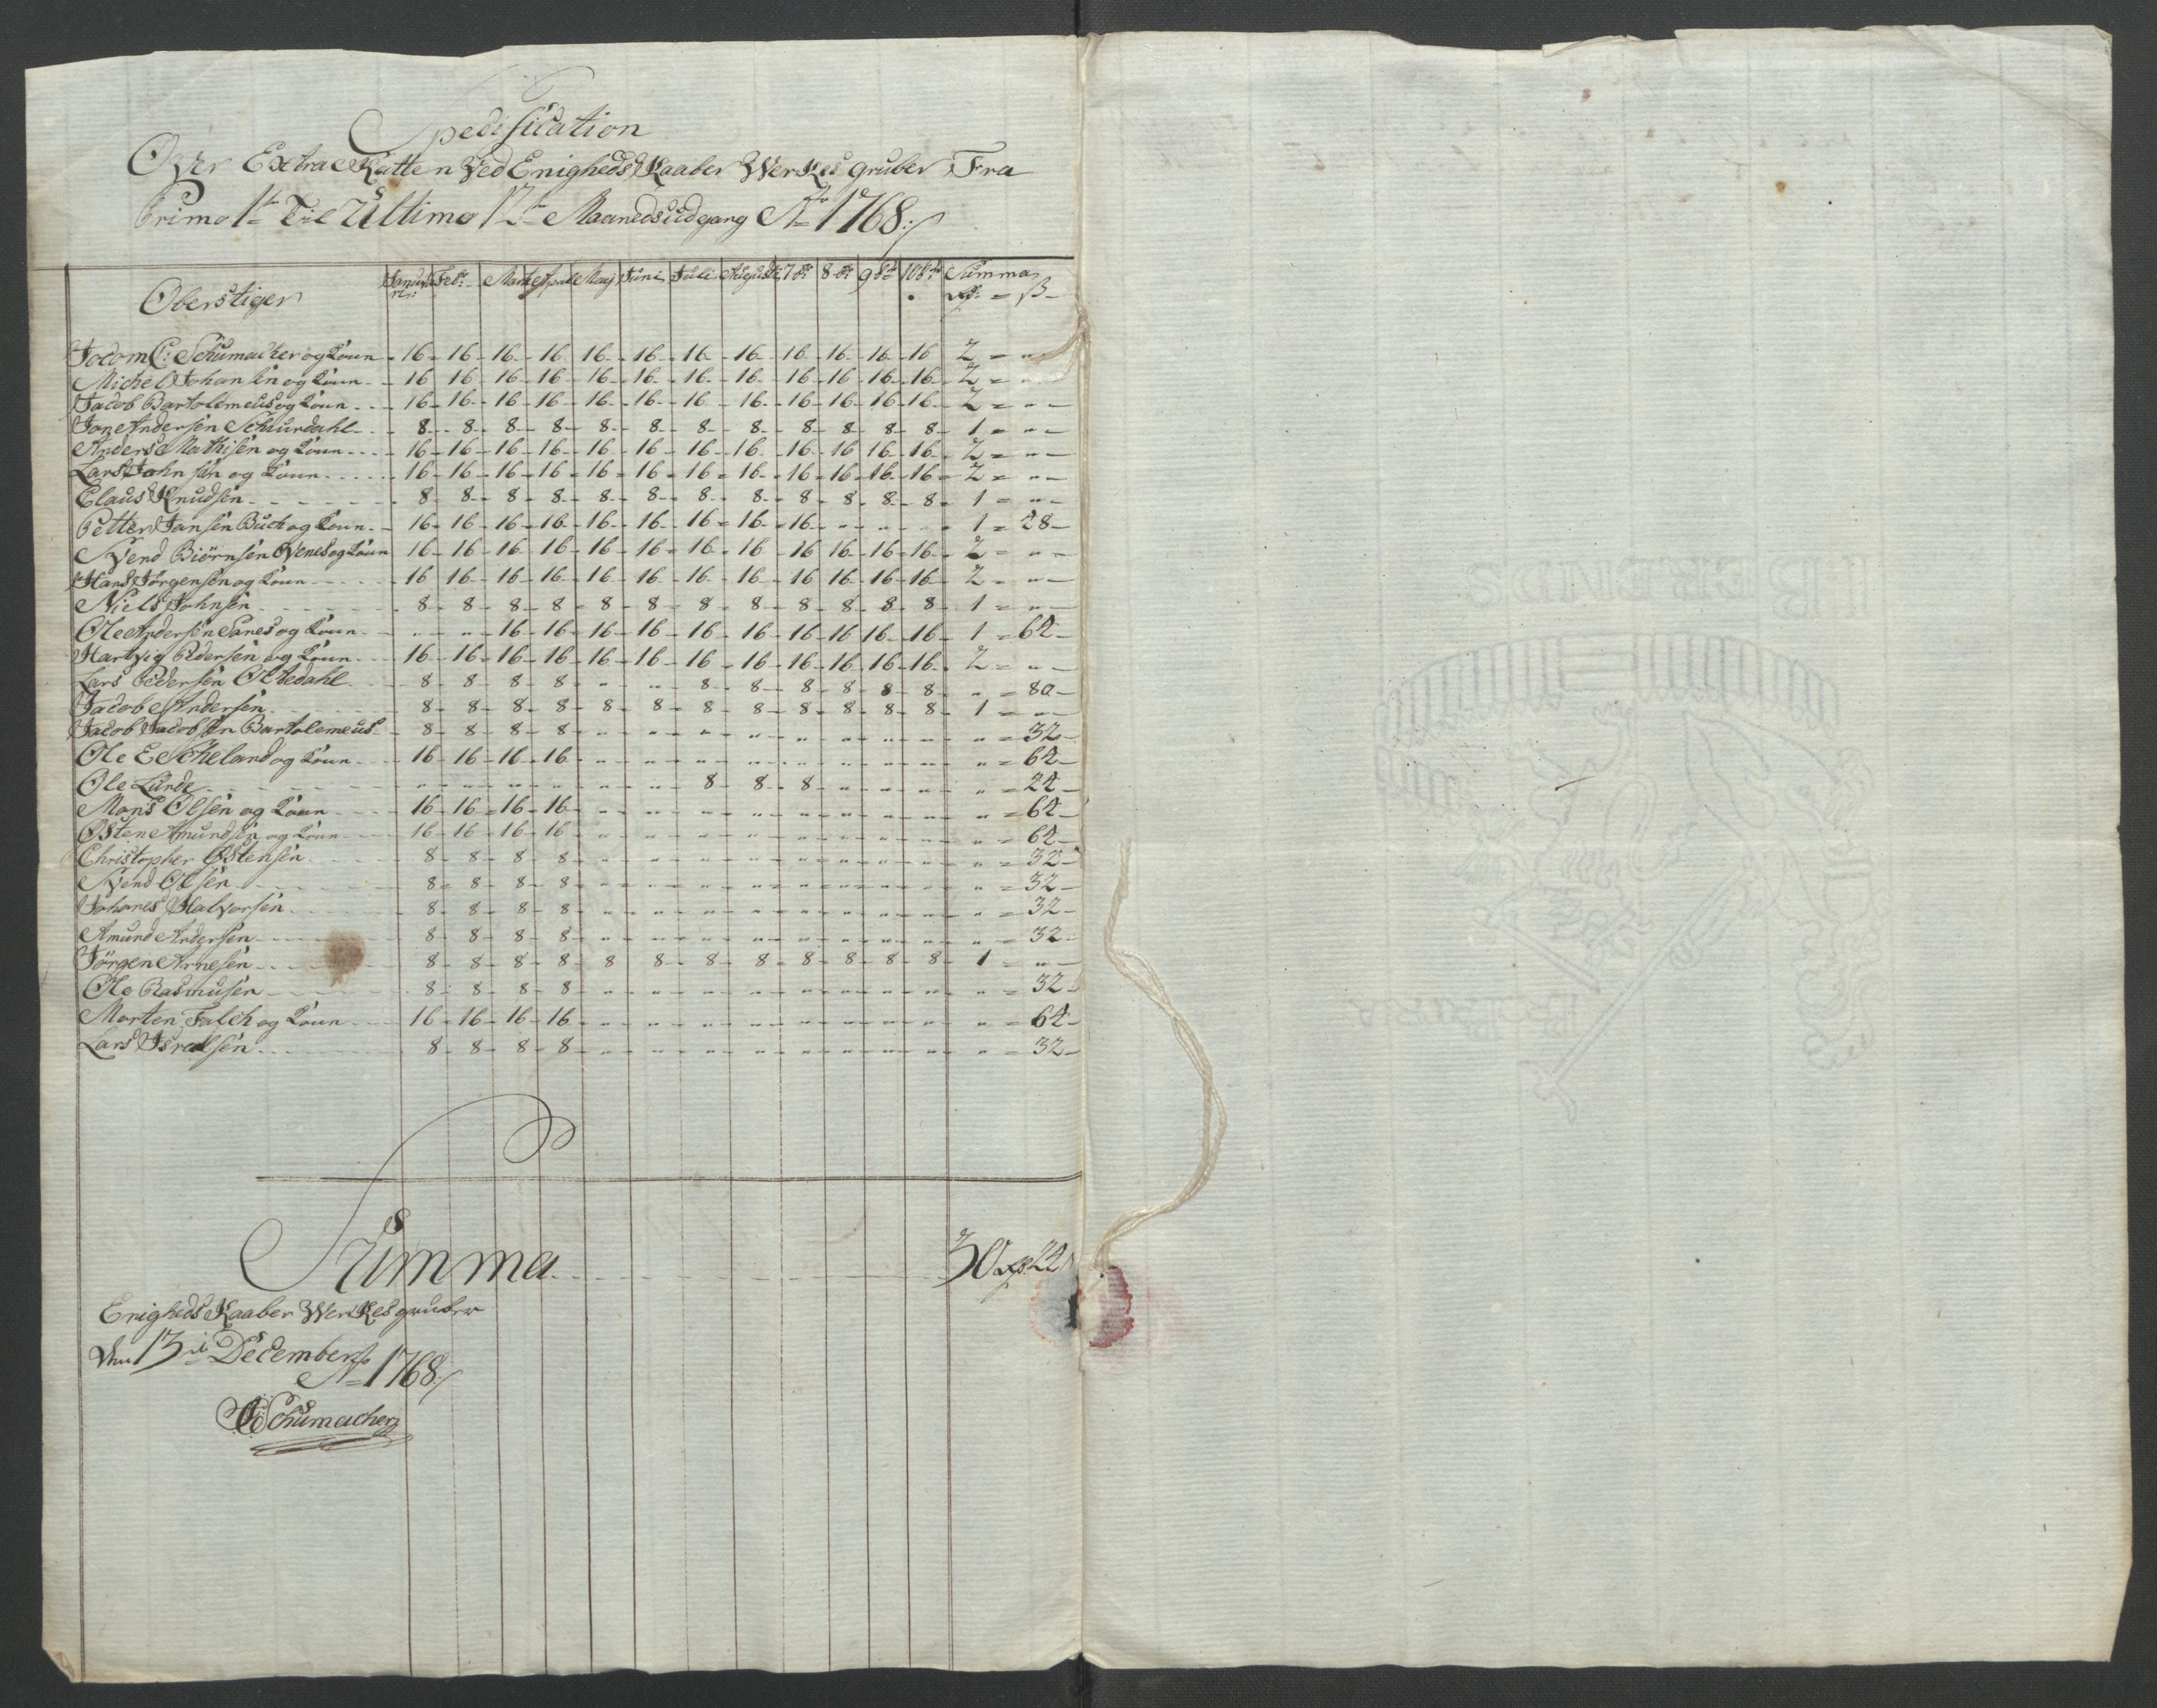 Spedification
Over Extra Skatten Ved Enigheds Kaaber Werkes gruber Fra
Primo 1te Til Ultimo 12te Maaneds udgang Ao 1768./
Oberstiger Januari: Febr: Marti Aprili Maij Juni Juli Augusti 7br 8br 9br 10br Summa
Rd: = ß
Jocom C: Schumacher og Koun 16 16 16 16 16 16 16 16 16 16 16 16 2 = "
Michel Johansen og Koun 16 16 16 16 16 16 16 16 16 16 16 16 2 = "
Jacob Bartolemeus og Koun 16 16 16 16 16 16 16 16 16 16 16 16 2 = "
Jan Andersen Schiurdahl 8 8 8 8 8 8 8 8 8 8 8 8 1 = "
Anders Mathisen og Koun 16 16 16 16 16 16 16 16 16 16 16 16 2 = "
Lars Johnsen og Koun 16 16 16 16 16 16 16 16 16 16 16 16 2 = "
Claus Knudsen 8 8 8 8 8 8 8 8 8 8 8 8 1 = "
Petter Jansen Buch og Koun 16 16 16 16 16 16 16 16 16 " " " 1 = 28
Svend Biörnsen Venes og Koun 16 16 16 16 16 16 16 16 16 16 16 16 2 = "
Hans Jörgensen og Koun 16 16 16 16 16 16 16 16 16 16 16 16 2 = "
Niels Johnsen 8 8 8 8 8 8 8 8 8 8 8 8 1 = "
Ole Andersen Sanes og Koun " " 16 16 16 16 16 16 16 16 16 16 1 = 64
Hartvig Pedersen og Koun 16 16 16 16 16 16 16 16 16 16 16 16 2 = "
Lars Pedersen 8 8 8 8 " " 8 8 8 8 8 8 " = 80
Jacob Andersen 8 8 8 8 8 8 8 8 8 8 8 8 1 = "
Jacob Jacobsen Bartolemeus 8 8 8 8 " " " " " " " " " = 32
Ole E Scheland og Koun 16 16 16 16 " " " " " " " " " = 64
Ole Lunde " " " " " " 8 8 8 " " " " = 24
Mons Olsen og Koun 16 16 16 16 " " " " " " " " " = 64
Østen Amundsen og Koun 16 16 16 16 " " " " " " " " " = 64
Christopher Østensen 8 8 8 8 " " " " " " " " " = 32
Svend Olsen 8 8 8 8 " " " " " " " " " = 32
Johanes Halvorsen 8 8 8 8 " " " " " " " " " = 32
Amund Andersen 8 8 8 8 " " " " " " " " " = 32
Jörgen Arnesen 8 8 8 8 8 8 8 8 8 8 8 8 1 = "
Ole Rasmusen 8 8 8 8 " " " " " " " " " = 32
Morten Falch og Koun 16 16 16 16 " " " " " " " " " = 64
Lars Israelsen 8 8 8 8 " " " " " " " " " = 32
Summa 30 Rd 24
Enigheds Kaaber Werkes gruber
Den 13de December
Ao 1768./
Schumacher